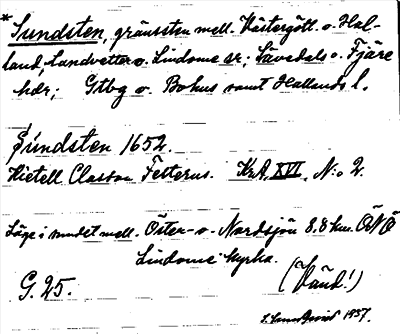 * Sundsten, gränssten mell. Västergötl. o. Hal-
land, Landvetter o. Lindome sr; Sävedals o. Fjäre
hdr; Gtbg o. Bohus samt Hallands l.
Sundsten 1652.
Kietell Classon Felterus. KrA. XVI, N:o 2.
Läge i sundet mell. Öster- o. Nordsjön 8.8 km. ÖNÖ
Lindome kyrka.
(Vänd!)
G. 25.
1937.